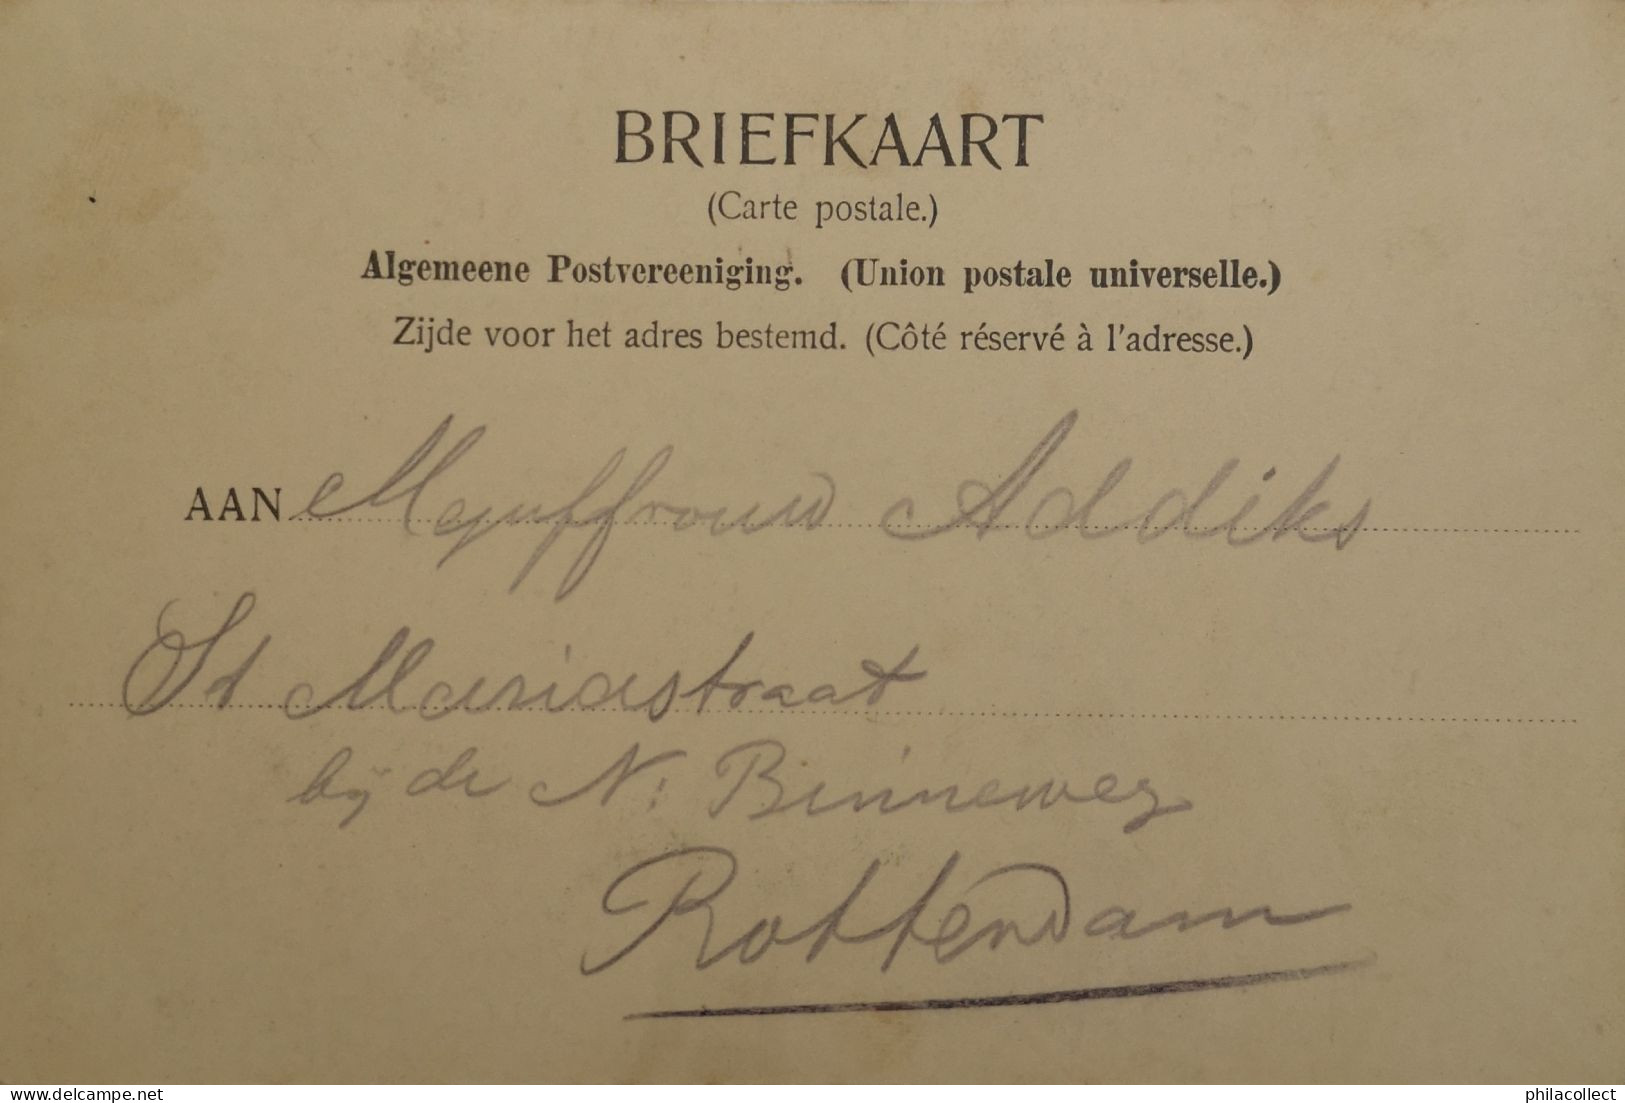 BRIEFKAART
(Carte postale.)
Algemeene Postvereeniging. (Union postale universelle.)
Zijde voor het adres bestemd. (Côté réservé à l'adresse.)
AAN Mejuffrouw Addiks
St Mariastraat
bij de N: Binneweg
Rotterdam
delcampe.net
philacollect